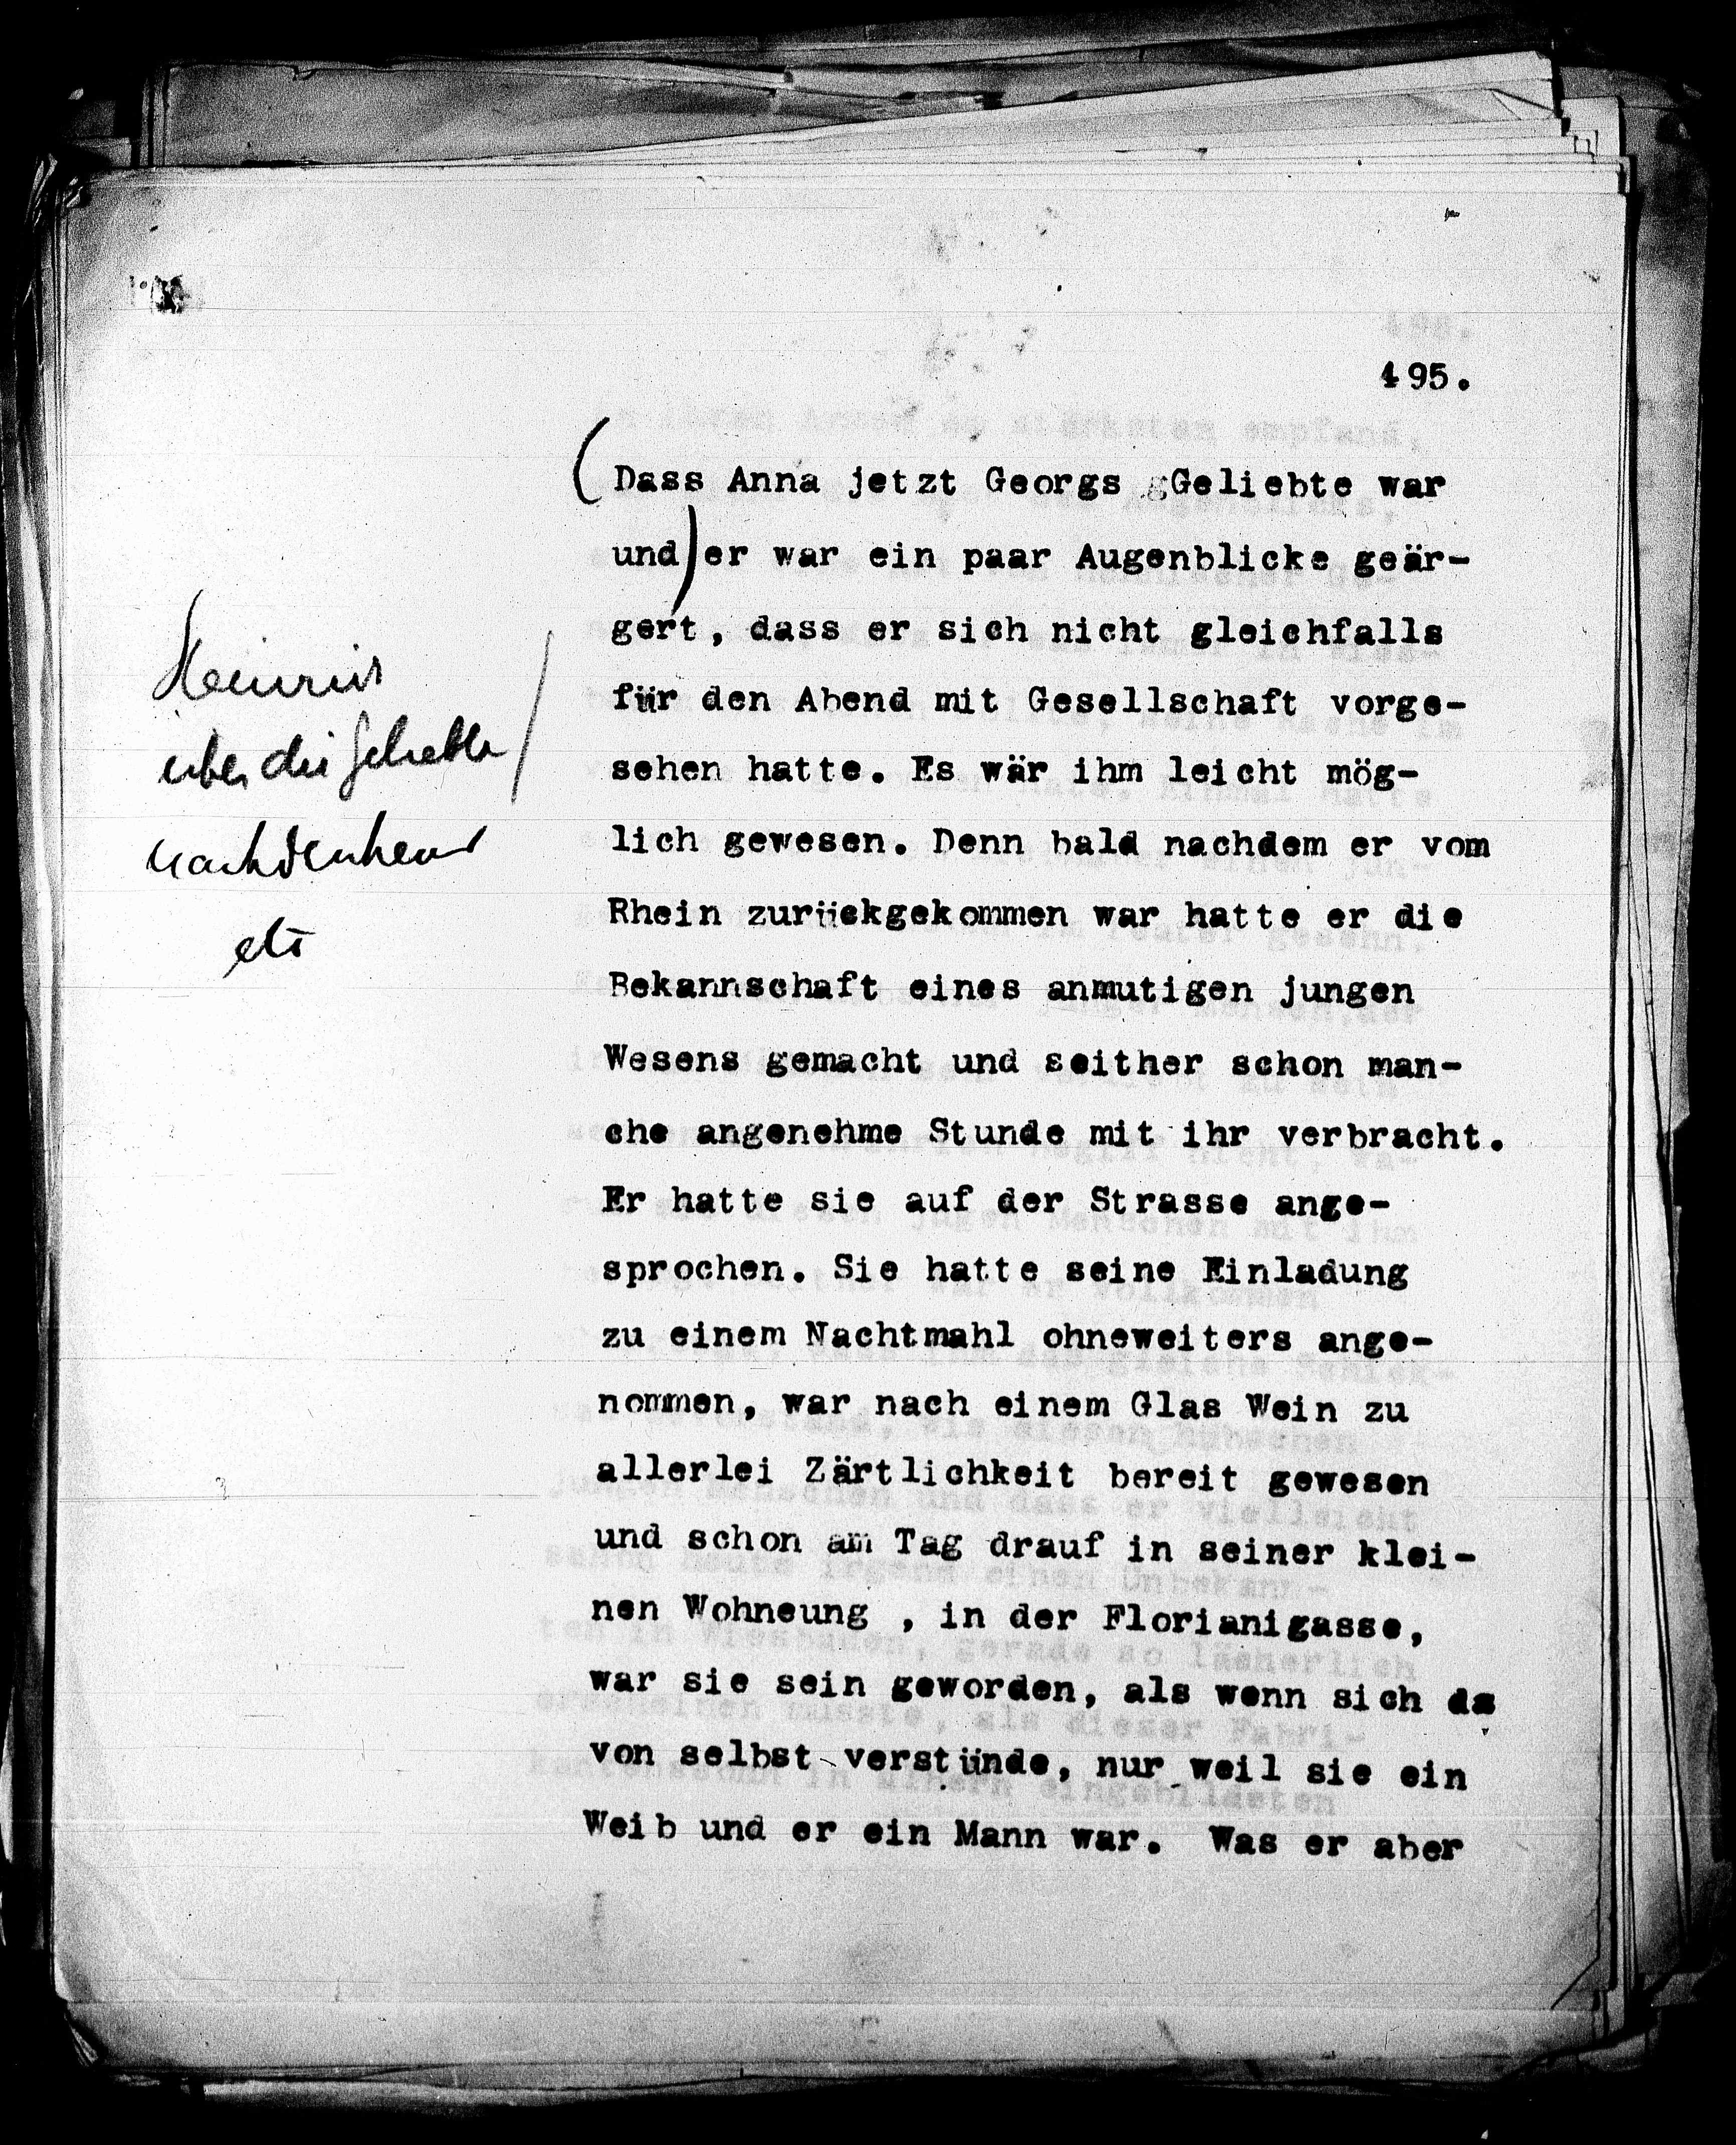 495.
(Dass Anna jetzt Georgs gGeliebte war
und) er war ein paar Augenblicke geär-
gert, dass er sich nicht gleichfalls
für den Abend mit Gesellschaft vorge-
sehen hatte. Es wär ihm leicht mög-
lich gewesen. Denn bald nachdem er vom
Rhein zurückgekommen war hatte er die
Bekannschaft eines anmutigen jungen
Wesens gemacht und seither schon man-
che angenehme Stunde mit ihr verbracht.
Er hatte sie auf der Strasse ange-
sprochen. Sie hatte seine Einladung
zu einem Nachtmahl ohneweiters ange-
nommen, war nach einem Glas Wein zu
allerlei Zärtlichkeit bereit gewesen
und schon am Tag drauf in seiner klei-
nen Wohneung , in der Florianigasse,
war sie sein geworden, als wenn sich da
von selbst verstünde, nur weil sie ein
Weib und er ein Mann war. Was er aber
Heinrich
über die
nachdenkend
etc